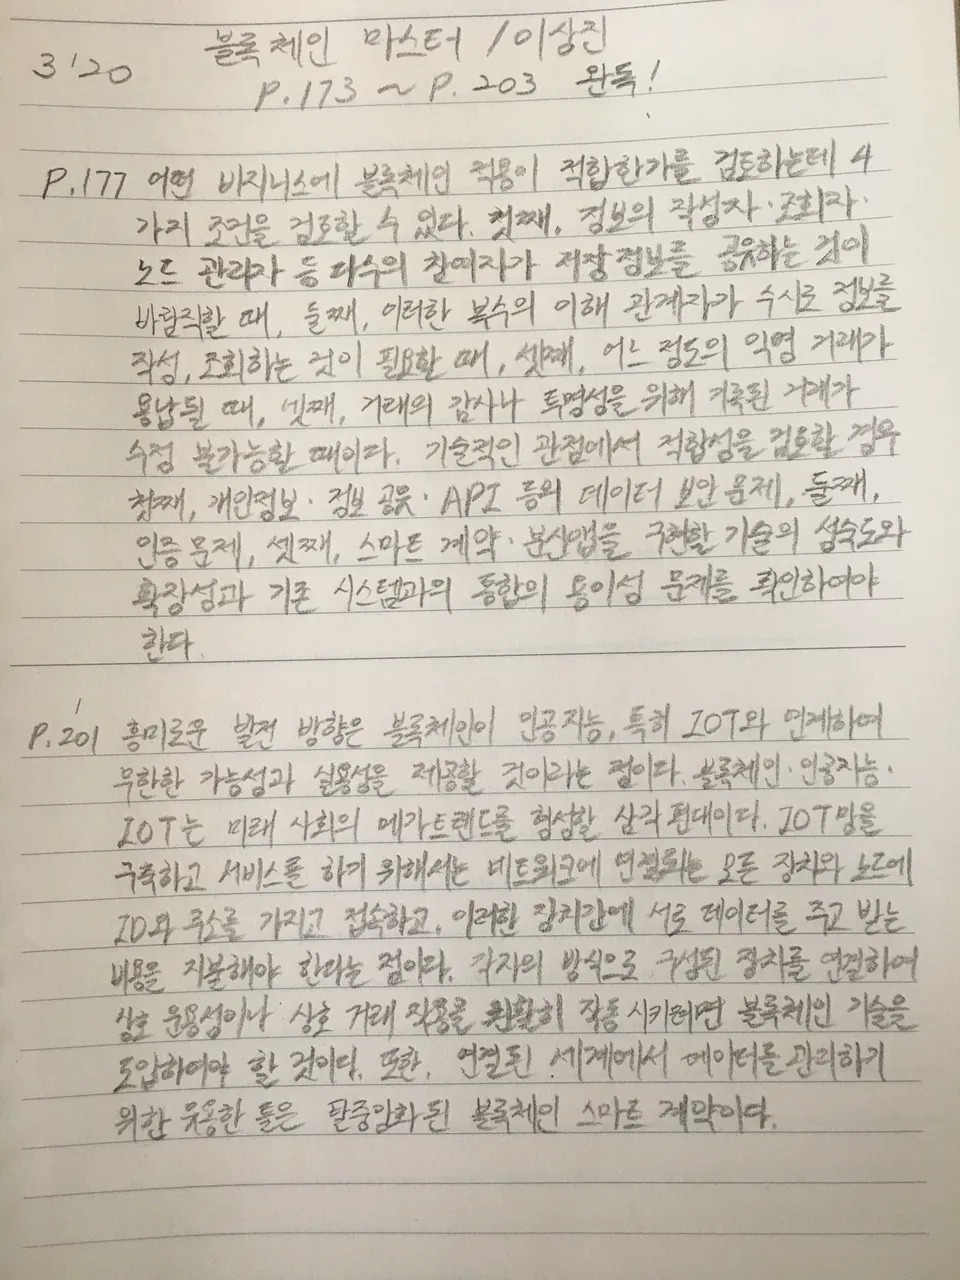 블록체인 마스터 / 이상진
3'20
P.173 ~ P.203 완독!
P.177 어떤 비지니스에 블록체인 적용이 적합한가를 검토하는데 4
가지 조건을 검토할 수 있다. 첫째, 정보의 작성자·조회자·
노드 관리자 등 다수의 참여자가 저장정보를 공유하는 것이
바람직할 때, 둘째, 이러한 복수의 이해 관계자가 수시로 정보를
작성, 조회하는 것이 필요할 때, 셋째, 어느 정도의 익명 거래가
용납될 때, 넷째, 거래의 감사나 투명성을 위해 기록된 거래가
수정 불가능할 때이다. 기술적인 관점에서 적합성을 검토할 경우
첫째, 개인정보·정보 공유·API 등의 데이터 보안 문제, 둘째,
인증 문제, 셋째, 스마트 계약·분산앱을 구현할 기술의 성숙도와
확장성과 기존 시스템과의 통합의 용이성 문제를 확인하여야
한다.
P.201 흥미로운 발전 방향은 블록체인이 인공지능, 특히 IOT와 연계하여
무한한 가능성과 실용성을 제공할 것이라는 점이다. 블록체인·인공지능·
IOT는 미래 사회의 메가트렌드를 형성할 삼각 편대이다. IOT망을
구축하고 서비스를 하기 위해서는 네트워크에 연결되는 모든 장치와 노드에
ID와 주소를 가지고 접속하고, 이러한 장치간에 서로 데이터를 주고 받는
비용을 지불해야 한다는 점이다. 각자의 방식으로 구성된 장치를 연결하여
상호 운용성이나 상호 거래 작용을 원활히 작동시키려면 블록체인 기술을
도입하여야 할 것이다. 또한, 연결된 세계에서 데이터를 관리하기
위한 유용한 툴은 탈중앙화된 블록체인 스마트 계약이다.